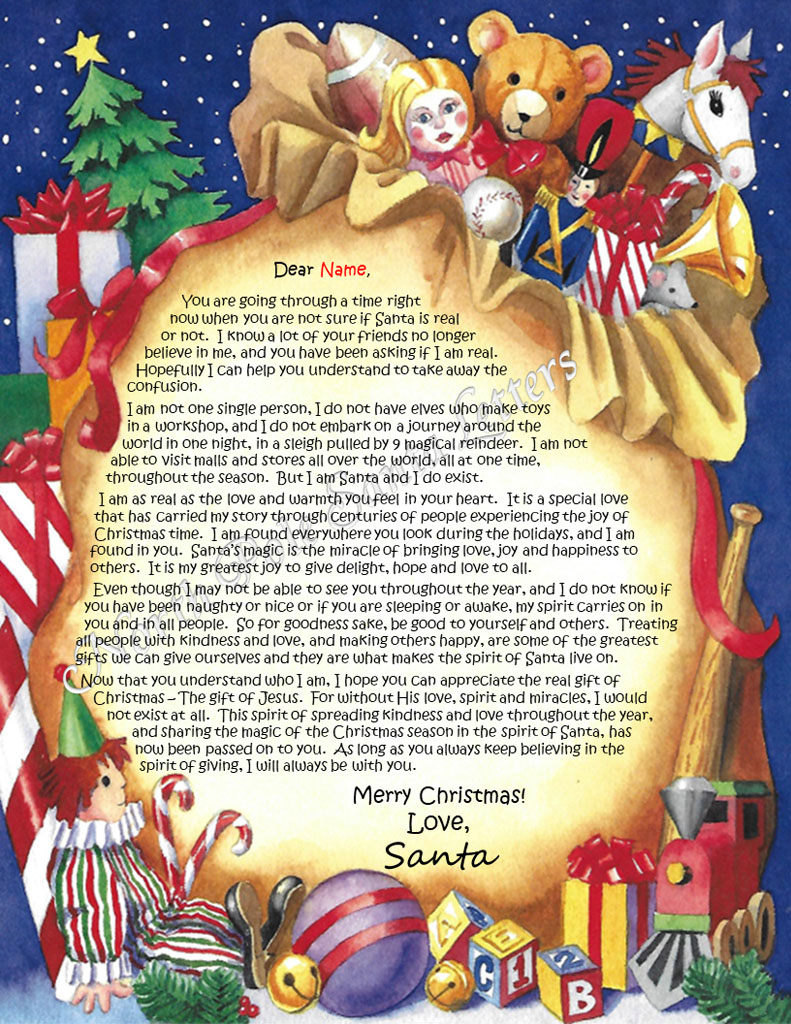 Dear Name,
You are going through a time right
now when you are not sure if Santa is real
or not.  I know a lot of your friends no longer
believe in me, and you have been asking if I am real.
Hopefully I can help you understand to take away the
confusion.
I am not one single person, I do not have elves who make toys
in a workshop, and I do not embark on a journey around the
world in one night, in a sleigh pulled by 9 magical reindeer.  I am not
able to visit malls and stores all over the world, all at one time,
throughout the season.  But I am Santa and I do exist.
I am as real as the love and warmth you feel in your heart.  It is a special love
that has carried my story through centuries of people experiencing the joy of
Christmas time.  I am found everywhere you look during the holidays, and I am
found in you.  Santa's magic is the miracle of bringing love, joy and happiness to
others.  It is my greatest joy to give delight, hope and love to all.
Even though I may not be able to see you throughout the year, and I do not know if
you have been naughty or nice or if you are sleeping or awake, my spirit carries on in
you and in all people.  So for goodness sake, be good to yourself and others.  Treating
all people with kindness and love, and making others happy, are some of the greatest
gifts we can give ourselves and they are what makes the spirit of Santa live on.
Now that you understand who I am, I hope you can appreciate the real gift of
Christmas – The gift of Jesus.  For without His love, spirit and miracles, I would
not exist at all.  This spirit of spreading kindness and love throughout the year,
and sharing the magic of the Christmas season in the spirit of Santa, has
now been passed on to you.  As long as you always keep believing in the
spirit of giving, I will always be with you.
Merry Christmas!
Love,
Santa
North Pole Santa Letters
A C E
C 1 2
B